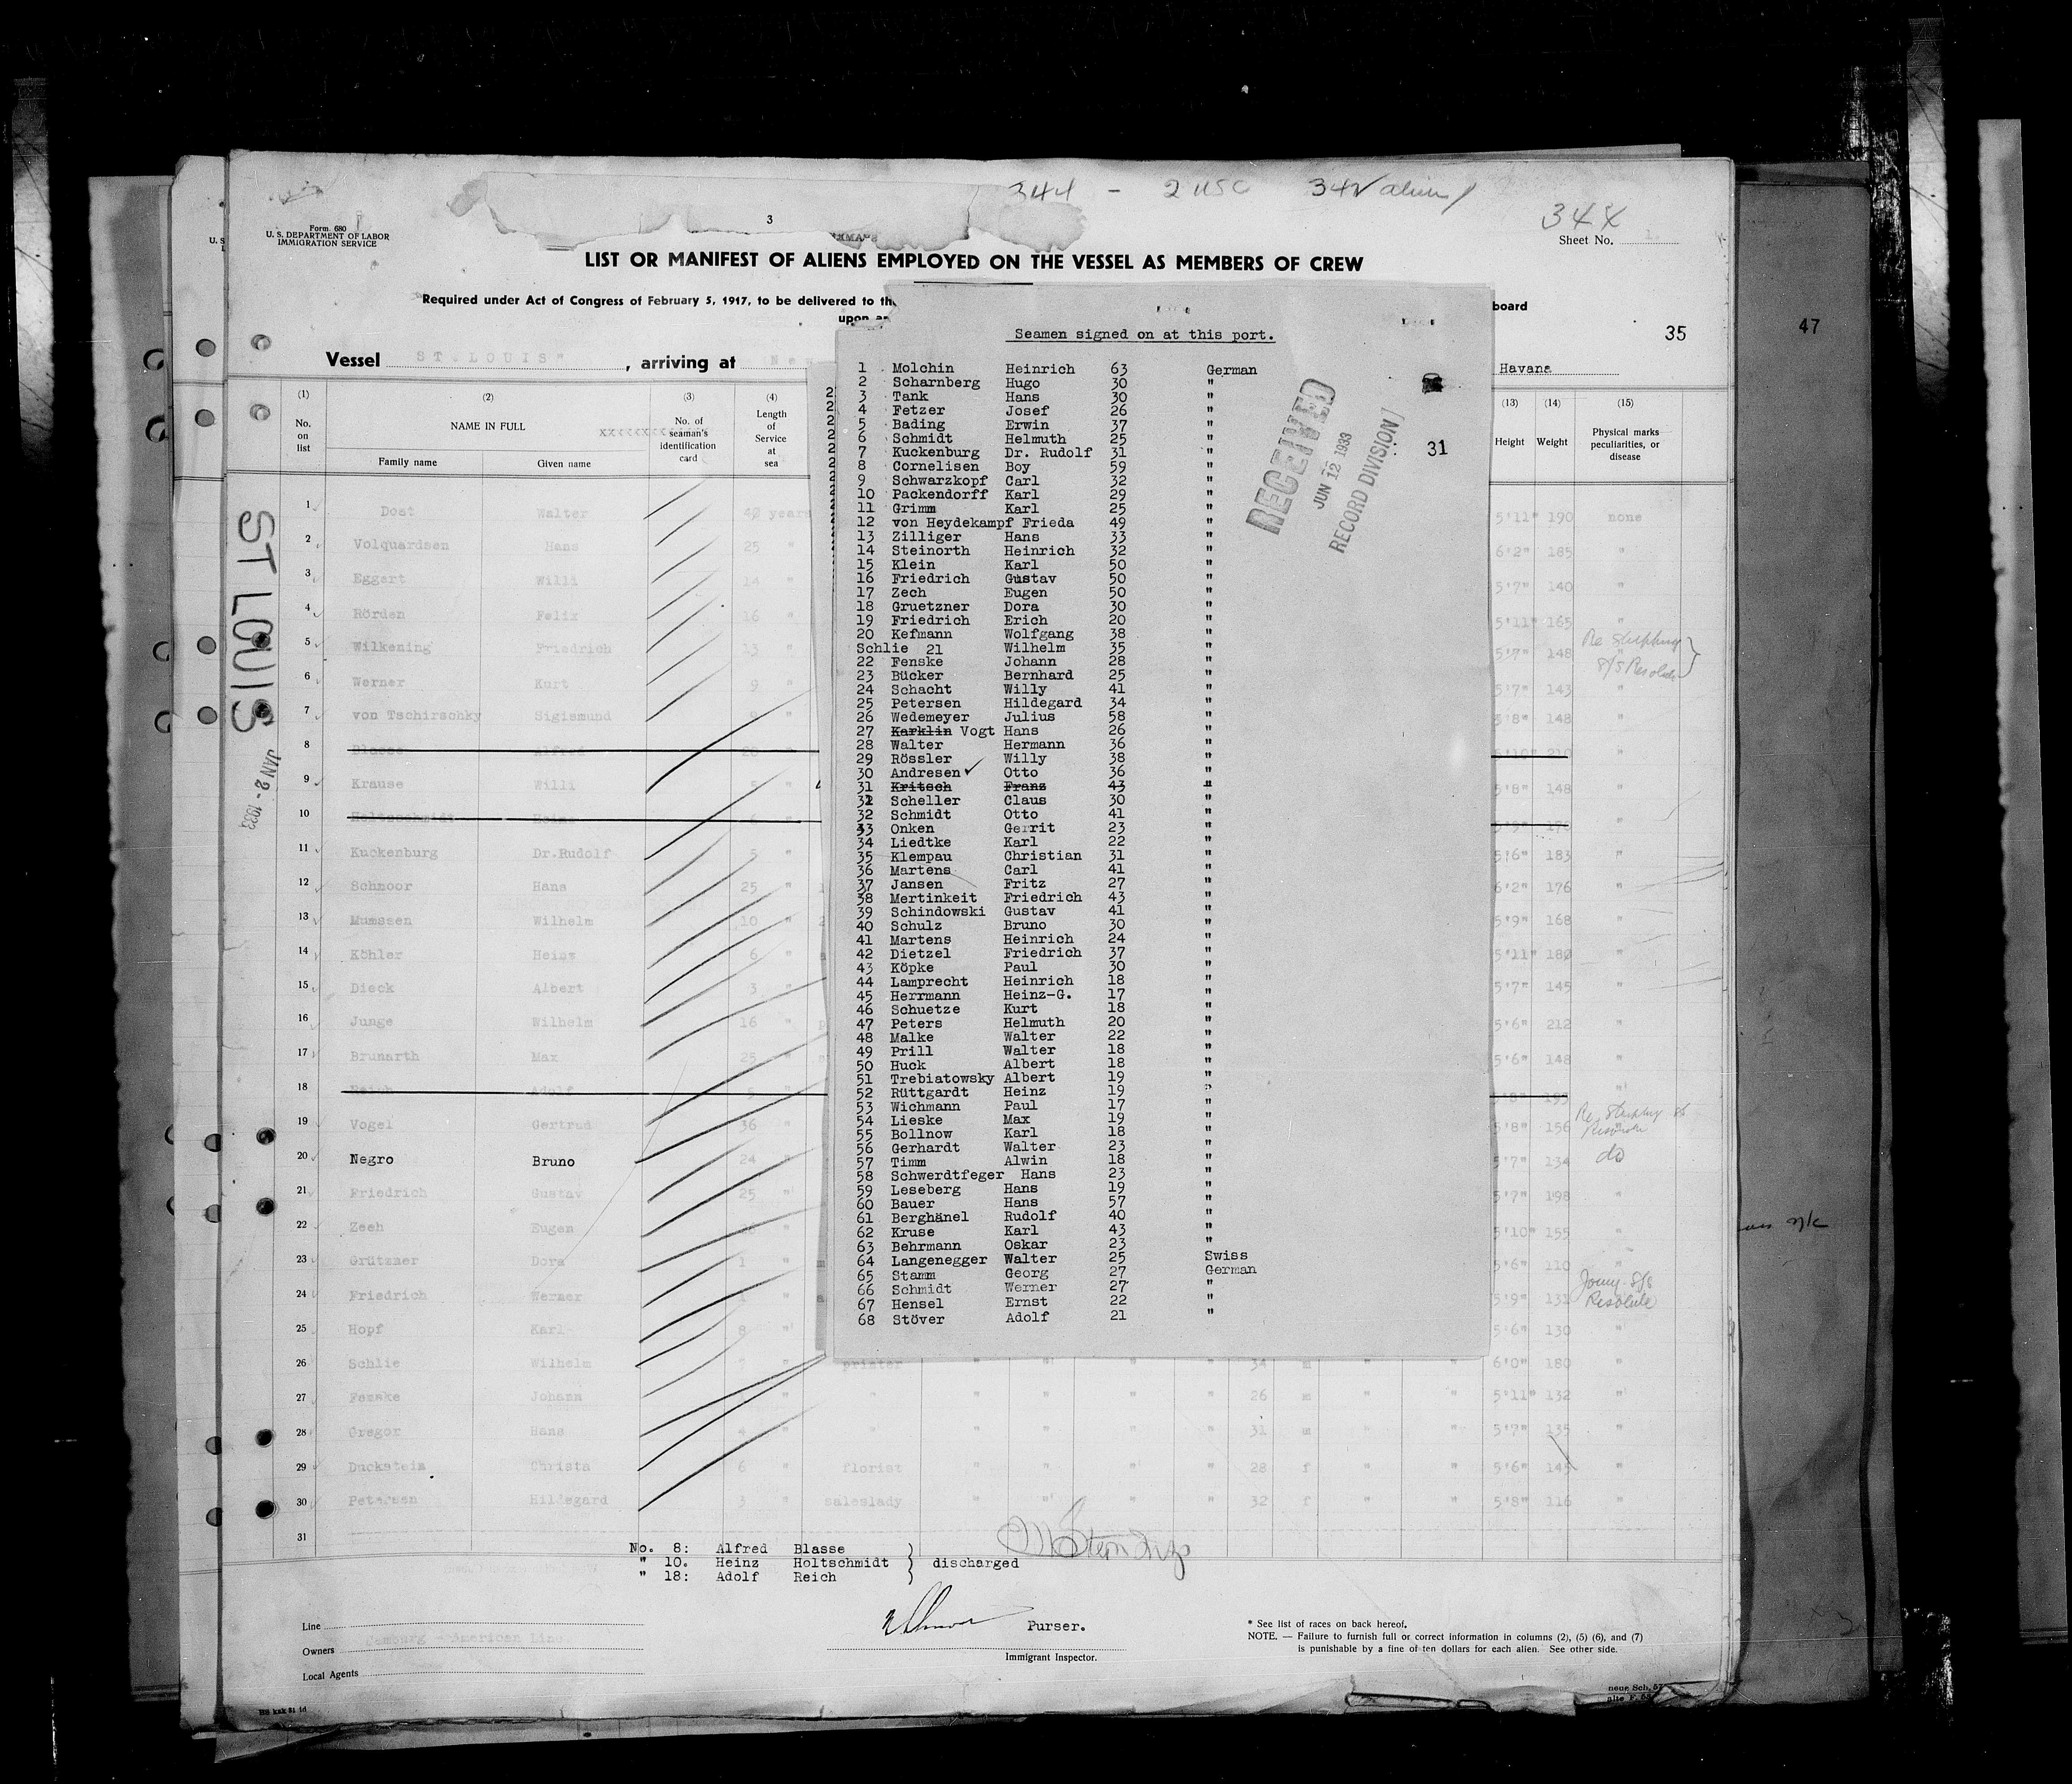 344 - 2 USC 342 aliens
344
3
Form 680
U. S. DEPARTMENT OF LABOR
IMMIGRATION SERVICE
Sheet No. 1.
LIST OR MANIFEST OF ALIENS EMPLOYED ON THE VESSEL AS MEMBERS OF CREW
Required under Act of Congress of February 5, 1917, to be delivered to th
board
upon
35
47
Vessel ST. LOUIS" , arriving at New
Havana
(1) (2) (3) (4) (13) (14) (15)
No. on list
NAME IN FULL
Family name Given name
No. of seaman's identification card
Length of Service at sea
Height Weight
Physical marks peculiarities, or disease
ST LOUIS
JAN 2 - 1933
1 Dost Walter 40 years 5'11" 190 none
2 Volquardsen Hans 25 " 6'2" 185 "
3 Eggert Willi 14 " 5'7" 140 "
4 Rörden Felix 16 " 5'11" 165 "
5 Wilkening Friedrich 13 " 5'7" 148
6 Werner Kurt 9 " 5'7" 143 "
7 von Tschirschky Sigismund 9 " 5'8" 148 "
8 Blasse Alfred 20 " 5'10" 210
9 Krause Willi 5 " 5'8" 148 "
10 Holtzschmidt Heinz 5'9"
11 Kuckenburg Dr.Rudolf 5 " 5'6" 183 "
12 Schnoor Hans 25 " 6'2" 176 "
13 Mumssen Wilhelm 10 " 5'9" 168 "
14 Köhler Heinz 6 " 5'11" 180 "
15 Dieck Albert 3 " 5'7" 145 "
16 Junge Wilhelm 16 " 5'6" 212 "
17 Brunarth Max 25 " 5'6" 148 "
18 Reich Adolf 5 " 5'8" 193 "
19 Vogel Gertrud 36 " 5'8" 156
20 Negro Bruno 24 5'7" 134 do
21 Friedrich Gustav 25 " 5'7" 198 "
22 Zech Eugen " 5'10" 155 "
23 Grützner Dora 1 " 5'6" 110 "
24 Friedrich Werner " 5'9" 131
25 Hopf Karl 8 " 5'6" 130 "
26 Schlie Wilhelm " printer " " " " 34 m " " 6'0" 180 "
27 Fenske Johann " " " " " " 26 m " " 5'11" 132 "
28 Gregor Hans 4 " " " " " " 31 m " " 5'7" 135 "
29 Duckstein Christa 6 " florist " " " " 28 f " " 5'6" 145 "
30 Petersen Hildegard 3 " saleslady " " " " 32 f " " 5'8" 116 "
31
Resolute
Seamen signed on at this port.
RECEIVED
JUN 12 1933
RECORD DIVISION]
31
1 Molchin Heinrich 63 German
2 Scharnberg Hugo 30 "
3 Tank Hans 30 "
4 Fetzer Josef 26 "
5 Bading Erwin 37 "
6 Schmidt Helmuth 25 "
7 Kuckenburg Dr. Rudolf 31 "
8 Cornelisen Boy 59 "
9 Schwarzkopf Carl 32 "
10 Packendorff Karl 29 "
11 Grimm Karl 25 "
12 von Heydekampf Frieda 49 "
13 Zilliger Hans 33 "
14 Steinorth Heinrich 32 "
15 Klein Karl 50 "
16 Friedrich Gustav 50 "
17 Zech Eugen 50 "
18 Gruetzner Dora 30 "
19 Friedrich Erich 20 "
20 Kefmann Wolfgang 38 "
Schlie 21 Wilhelm 35 "
22 Fenske Johann 28 "
23 Bücker Bernhard 25 "
24 Schacht Willy 41 "
25 Petersen Hildegard 34 "
26 Wedemeyer Julius 58 "
27 Karklin Vogt Hans 26 "
28 Walter Hermann 36 "
29 Rössler Willy 38 "
30 Andresen✓ Otto 36 "
31 Kritsch Franz 43 "
32 Scheller Claus 30 "
32 Schmidt Otto 41 "
33 Onken Gerrit 23 "
34 Liedtke Karl 22 "
35 Klempau Christian 31 "
36 Martens Carl 41 "
37 Jansen Fritz 27 "
38 Mertinkeit Friedrich 43 "
39 Schindowski Gustav 41 "
40 Schulz Bruno 30 "
41 Martens Heinrich 24 "
42 Dietzel Friedrich 37 "
43 Köpke Paul 30 "
44 Lamprecht Heinrich 18 "
45 Herrmann Heinz-G. 17 "
46 Schuetze Kurt 18 "
47 Peters Helmuth 20 "
48 Malke Walter 22 "
49 Prill Walter 18 "
50 Huck Albert 18 "
51 Trebiatowsky Albert 19 "
52 Rüttgardt Heinz 19 "
53 Wichmann Paul 17 "
54 Lieske Max 19 "
55 Bollnow Karl 18 "
56 Gerhardt Walter 23 "
57 Timm Alwin 18 "
58 Schwerdtfeger Hans 23 "
59 Leseberg Hans 19 "
60 Bauer Hans 57 "
61 Berghänel Rudolf 40 "
62 Kruse Karl 43 "
63 Behrmann Oskar 23 "
64 Langenegger Walter 25 Swiss
65 Stamm Georg 27 German
66 Schmidt Werner 27 "
67 Hensel Ernst 22 "
68 Stöver Adolf 21 "
No. 8: Alfred Blasse
" 10. Heinz Holtschmidt } discharged
" 18: Adolf Reich
Purser.
Immigrant Inspector.
Line
Owners Hamburg - American Line
Local Agents
* See list of races on back hereof.
NOTE. — Failure to furnish full or correct information in columns (2), (5) (6), and (7)
is punishable by a fine of ten dollars for each alien. See other side.
neue Sch. 57